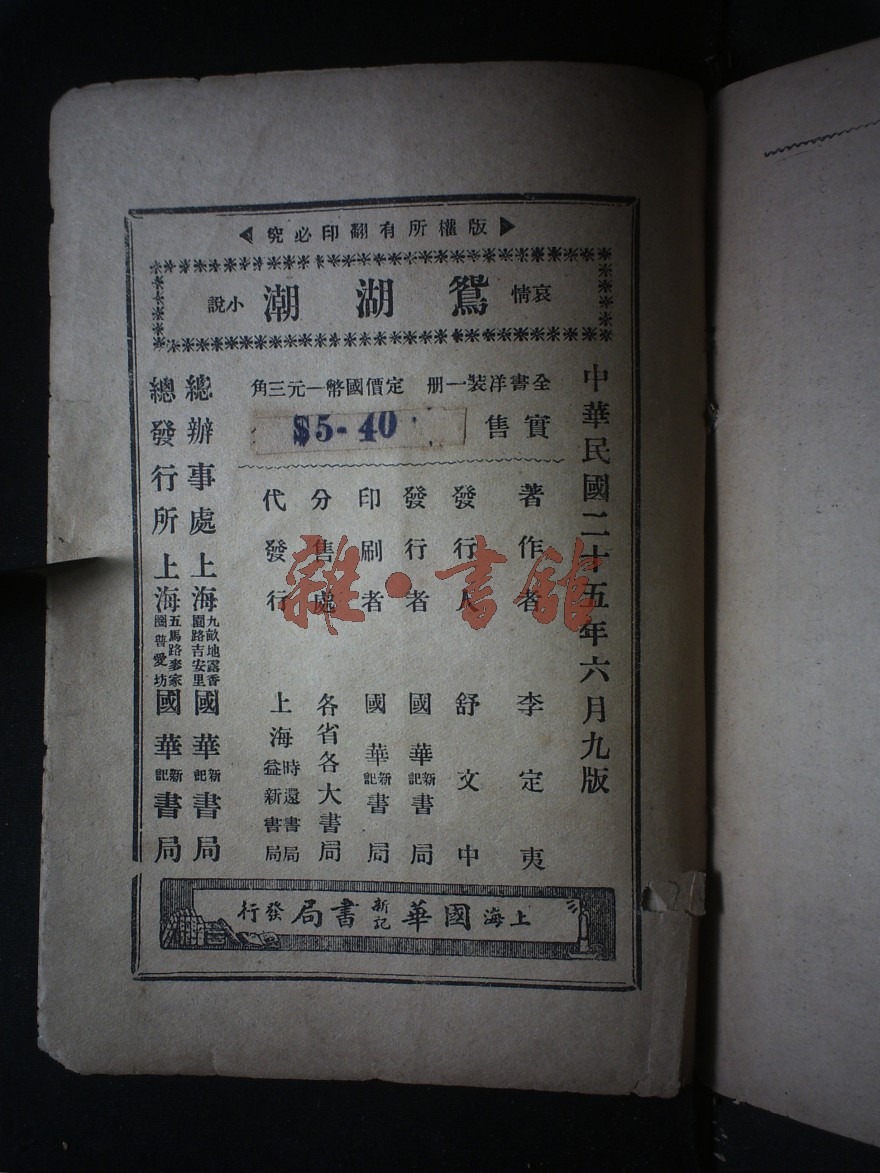 版權所有翻印必究
哀情 鴛湖潮 小說
中華民國二十五年六月九版
全書洋裝一册 定價國幣一元三角
實售 $5-40
著作者 李定夷
發行人 舒文中
發行者 國華新記書局
印刷者 國華新記書局
分售處 各省各大書局
代發行 上海時還書局 益新書局
總辦事處 上海九畝地露香園路吉安里 國華新記書局
總發行所 上海五馬路麥家圈普愛坊 國華新記書局
上海國華新記書局發行
雜·書館